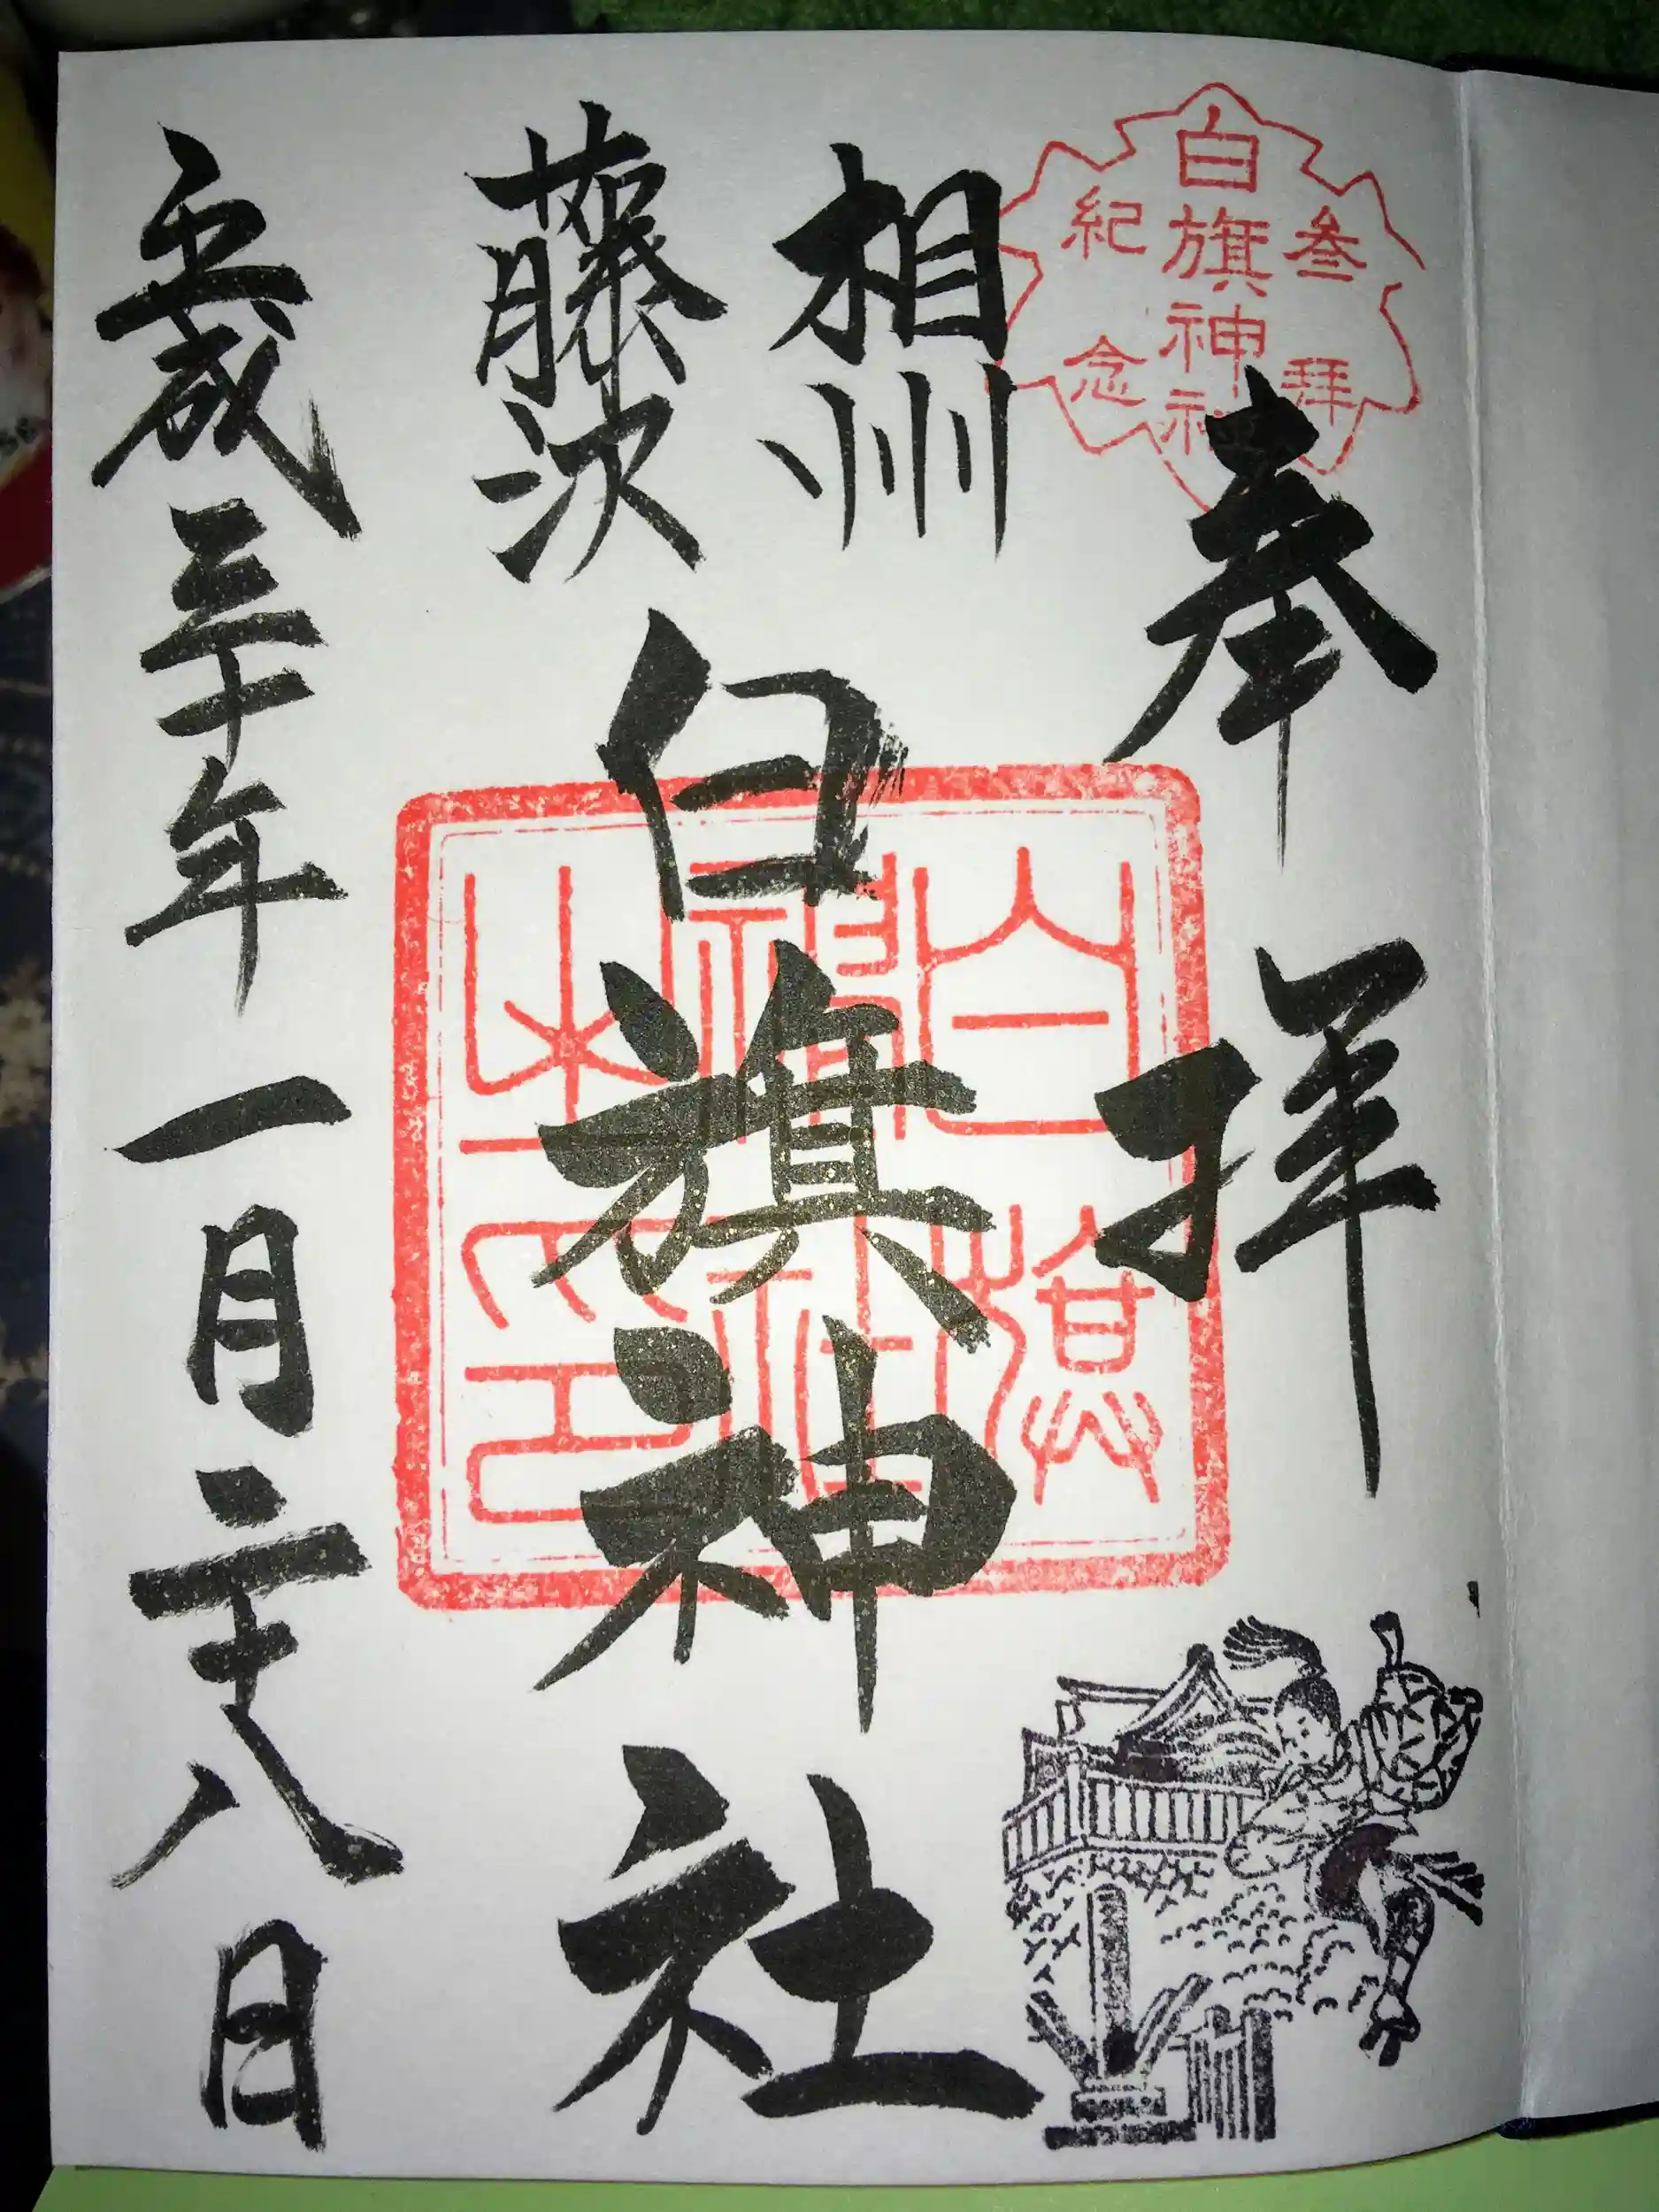 奉拝
相州
藤沢
白旗神社
平成三十年一月二十八日
参拝
白旗神社
紀念
白旗
神社
之印